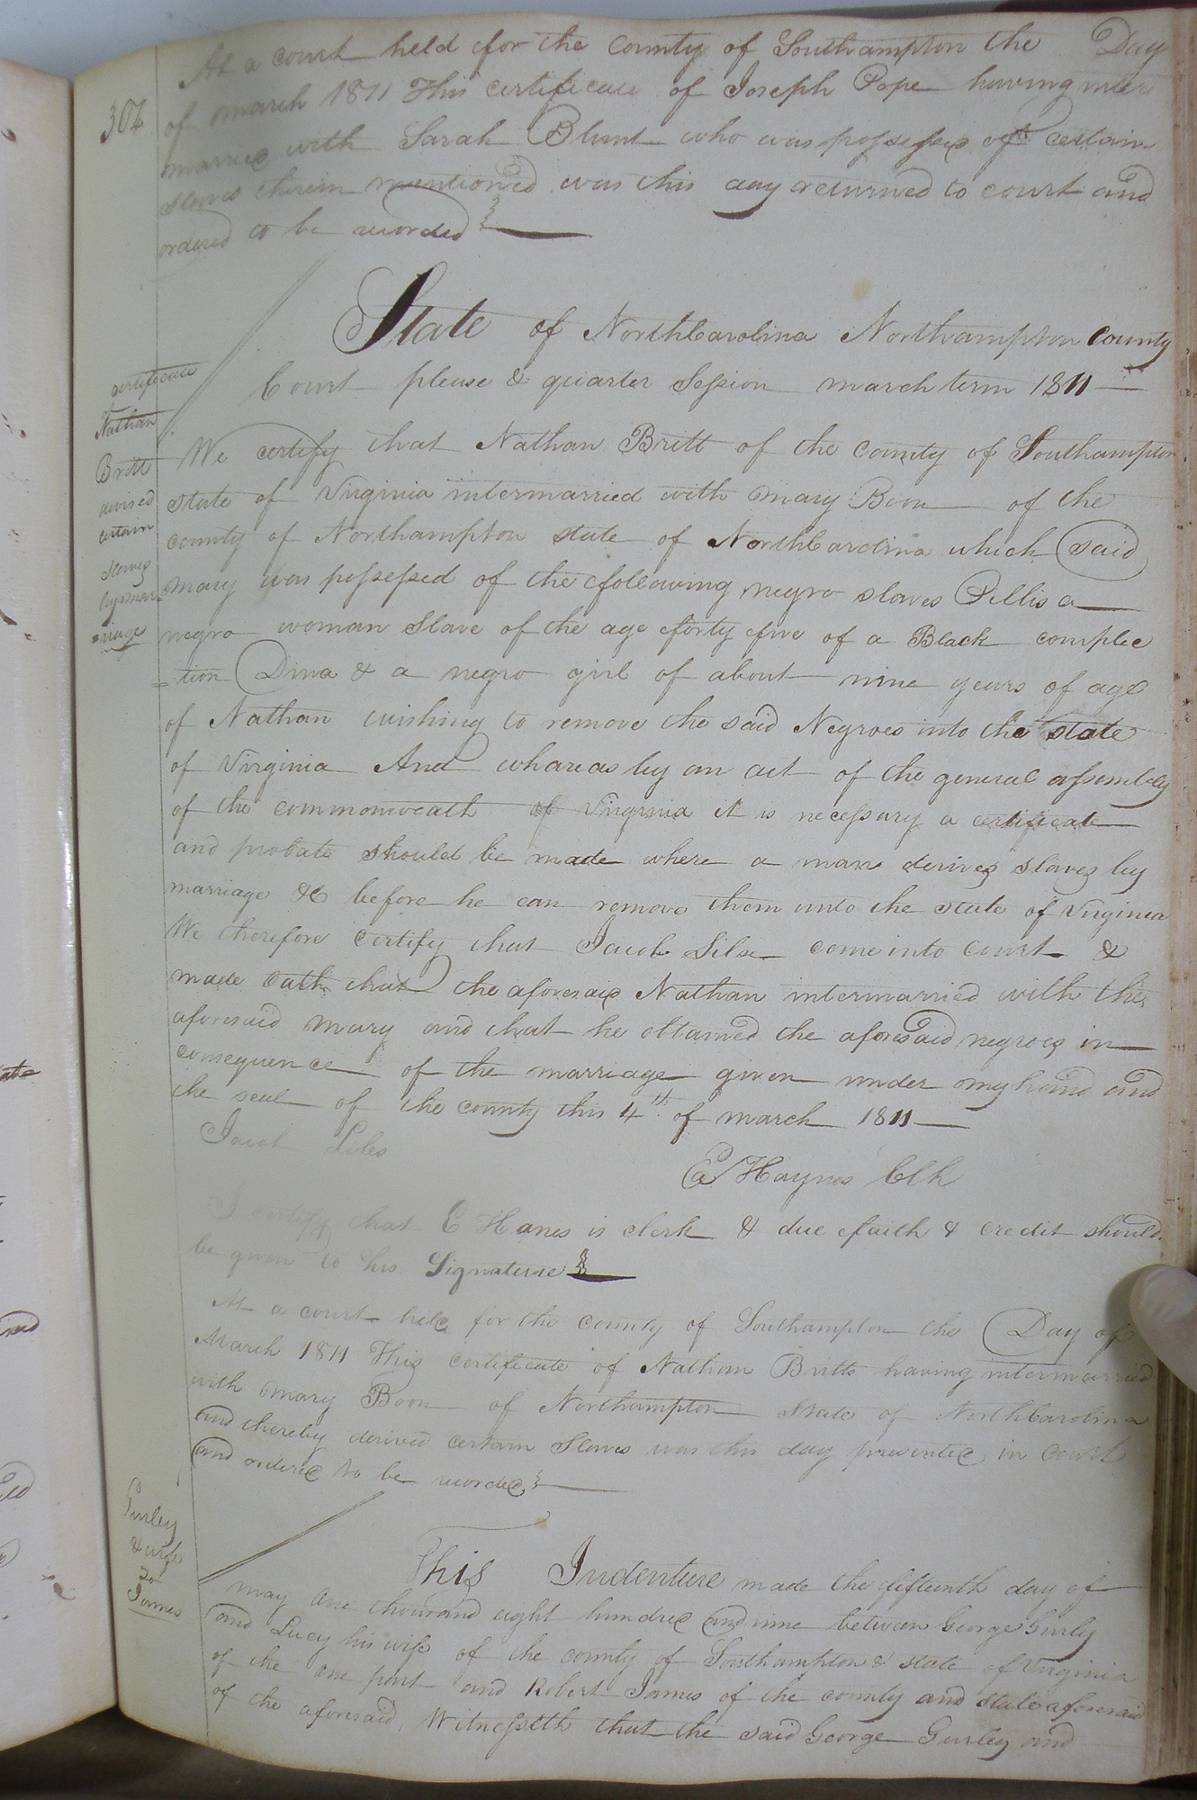 304
At a court held for the County of Southampton the Day
of march 1811 This certificate of Joseph Pope having inter
married with Sarah Blunt who was possessed of certain
slaves therein mentioned was this day returned to court and
ordered to be recorded
State of NorthCarolina Northampton County
Court please & quarter Session march term 1811
certificate
Nathan
Britt
derived
certain
slaves
by marr
=iage
We certify that Nathan Britt of the county of Southampton
state of Virginia intermarried with mary Boon of the
county of Northampton state of NorthCarolina which said
mary was possessed of the following negro slaves Pillis a
negro woman Slave of the age forty five of a Black complec
=tion Dina & a negro girl of about nine years of age
of Nathan wishing to remove the said Negroes into the state
of Virginia And whareas by an act of the general assembly
of the commonweath of Virginia it is necessary a certificate
and probate should be made where a man derives slaves by
marriage &c before he can remove them into the state of Virginia
We therefore certify that Jacob come into court &
made oath that the aforesaid Nathan intermarried with the
aforesaid mary and that he obtained the aforesaid negroes in
consequence of the marriage given under my hand and
the seal of the county this 4th of march 1811
Jacob Liles
E Haynes Clk
I certify that E Hanes is clerk & due faith & credit should
be given to his Signature
At a court held for the county of Southampton the Day of
March 1811 This certificate of Nathan Britts having intermarried
with mary Boon of Northampton state of NorthCarolina
and thereby derived certain Slaves was this day presented in court
and ordered to be recorded
Gurley
& wife
to
James
This Indenture made the fifteenth day of
may one thousand eight hundred and nine between George Gurly
and Lucy his wife of the county of Southampton & state of Virginia
of the one part and Robert James of the county and state aforesaid
of the aforesaid, Witnesseth that the said George Gurley and